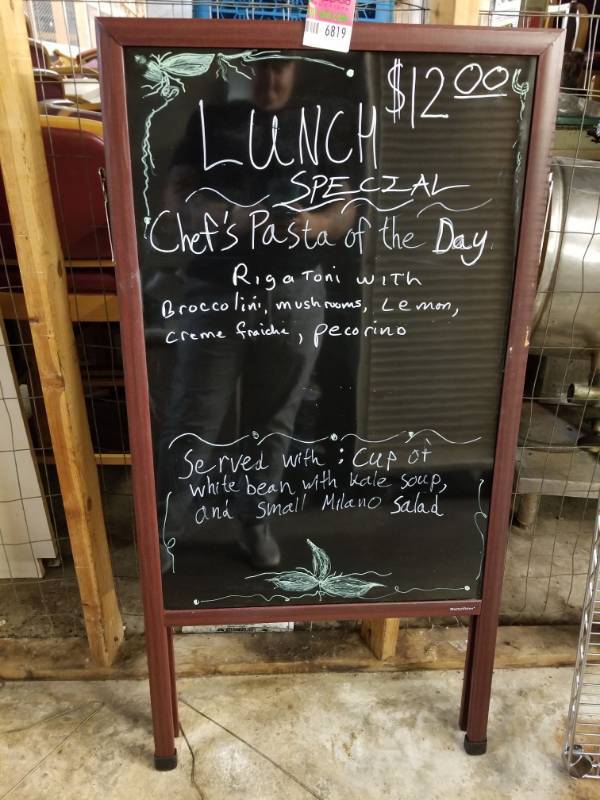 6819
$12.00
LUNCH
SPECIAL
Chef's Pasta of the Day
Rigatoni with
Broccolini, mushrooms, Lemon,
creme fraiche, pecorino
Served with: Cup of
white bean with kale soup,
and small Milano Salad